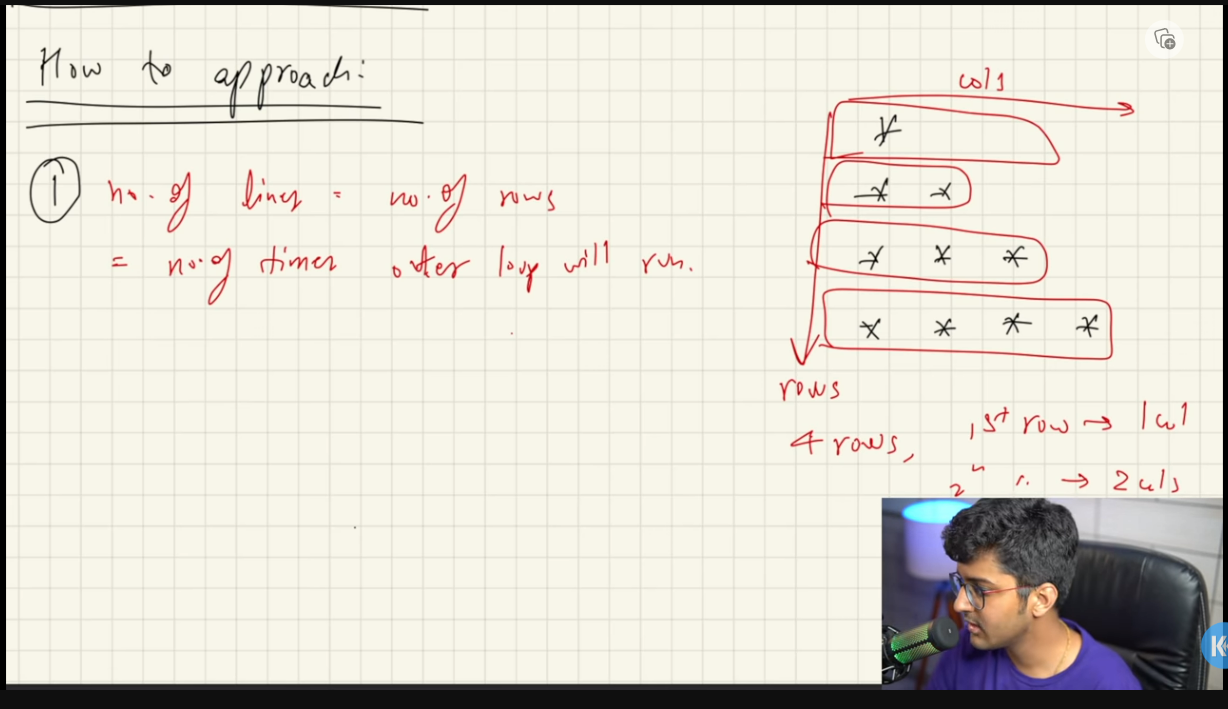 How to approach:
1 no. of lines = no. of rows
= no. of times outer loop will run.
cols
*
* *
* * *
* * * *
rows
4 rows,
1st row → 1 col
→ 2 cols
K